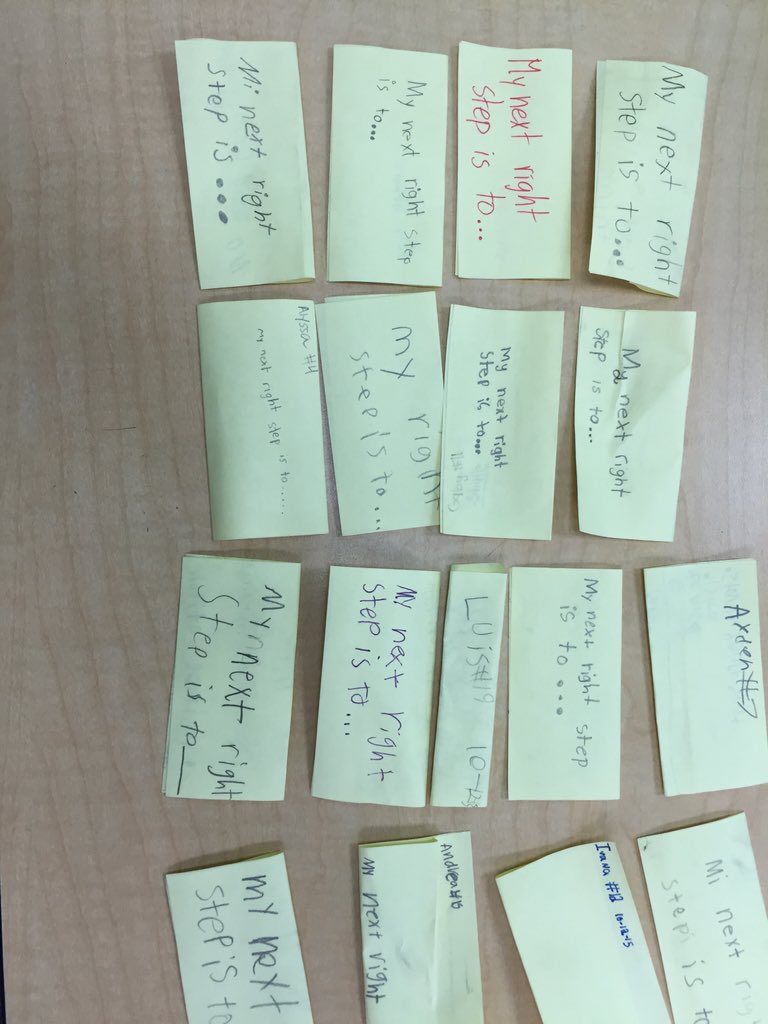 Mi next right
step is...
My next right step
is to...
My next right
step is to...
My next right
step is to...
Alyssa #4
my next right step is to......
my right
step is to...
My next right
step is to...
My next right
step is to...
My next right
Step is to___
My next right
step is to...
Luis #19
My next right step
is to....
Axden #7
my next
step is to
Andrea #13
My next right
Ivana #12 10-12-15
Mi next
step is to